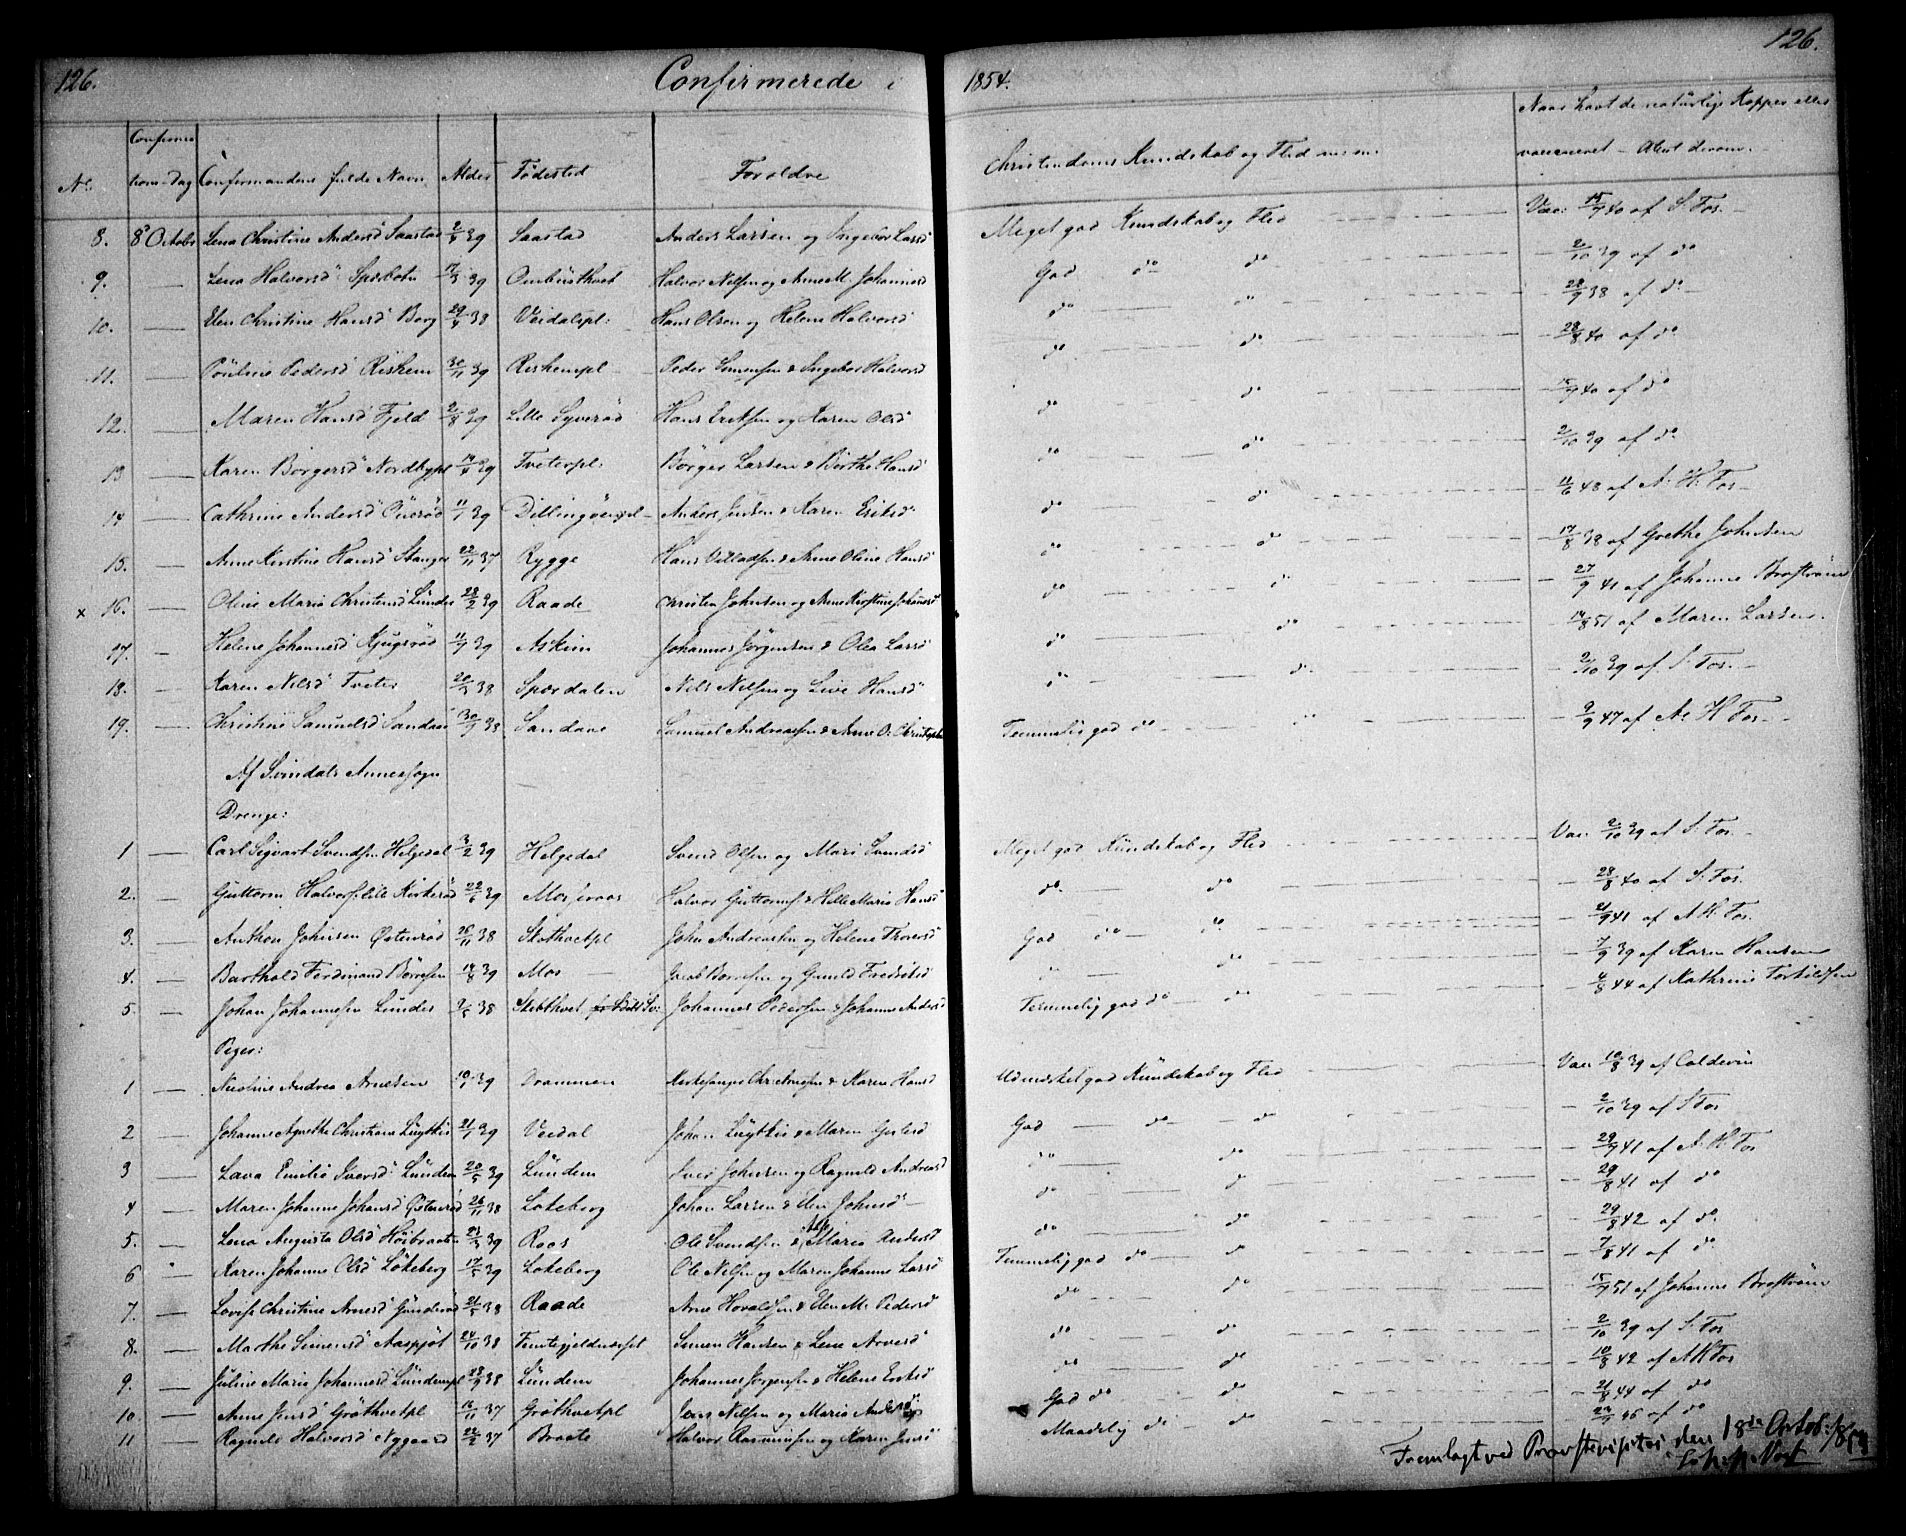 126. Confirmerede i 1854. 126.
No. Confirmations-Dag Confirmandens fulde Navn Alder Fødested Forældre Christendoms Kundskab og Flid m. m. Naar havt de naturlige Kopper eller vaccineret – Attest derom.
8. 8de Octobr Lena Christine Andersd Saastad 39 Saastad Anders Larsen og Ingebor Larsd Meget god Kundskab og Flid Vac: 40 af S. Fos.
9. — Lena Halvorsd 39 Halvor Nilsen og Anne M. Johannesd God do do 2/10 39 af do
10. — Elen Christine Hansd Berg 38 Veidalspl: Hans Olsen og Helene Halvorsd do do 28/9 38 af do
11. — Pouline Pedersd Riskem 30/11 39 Riskempl Peder Simensen & Ingebor Halvorsd do do 28/8 40 af do
12. — Maren Hansd Fjeld 2/8 39 Lille Syverød Hans Eriksen og Karen Olsd do do 40 af do
13 — Karen Borgersd Nordbypl 39 Tveterpl: Borger Larsen & Berthe Hansd do do 2/10 39 af do
14 — Cathrine Andersd 39 Anders Jensen & Karen Eriksd do do 11/6 48 af A. H. Fos
15. — Anne Kirstine Hansd Stanger 22/11 37 Rygge Hans Villadsen & Anne Oline Hansd do do 17/8 38 af Grethe Johnsen
x 16. — Oline Maria Christensd Lunder 28/2 39 Raade Christen Johnsen og Anne Kirstine Johansd do do 27/9 41 af Johanne Brostrøm
17. — Helene Johannesd Kjugsrød 39 Askim Johannes Jørgensen & Olea Larsd do do 14/8 51 af Maren Larsen.
18. — Karen Nilsd Tveter 38 Spærdalen Nils Nilsen og Live Hansd do do 2/10 39 af S. Fos.
19. — Christine Samuelsd Sandaae 38 Sandaae Samuel Andreassen & Anne O. Temmelig god do 9/9 47 af A. H. Fos.
Af Svindals Annexsogn
Drenge:
1 — Carl Sigvart Svendsen Helgedal 3/2 39 Helgedal Svend Olsen og Mari Svendsd Meget god Kundskab og Flid Vac. 2/10 39 af S. Fos.
2. — Guttorm Halvorsen lille Kirkerød 22/6 39 Halvor Guttormsen & Helle Maria Hansd do do 28/8 40 af S. Fos.
3. — Anthon Johnsen Østenrød 26/11 38 John Andreassen og Helene God do do 41 af A. H. Fos.
4. — Barthold Ferdinand Børresen 14/8 39 Mos Jacob Børresen og Gunild Fredriksd do do 7/9 39 af Karen Hansen
5 — Johan Johannesen Lunder 38 Johannes Pedersen & Johanne Andersd Temmelig god do do 44 af Kathrine Torkildsen
Piger:
1 — Nicoline Andrea Arnesen 39 Drammen Kirkesanger Chr: Arnesen & Karen Hansd Udmærket god Kundskab og Flid Vac: 10/8 39 af Coldevin
2 — Johanne Agnethe Christiane Luytkis 39 Veidal Johan Luytkis & Maren God do do 2/10 39 af S Fos
3 — Lava Emilie Iversd Lundem 20/5 39 Lundem Iver Johnsen og Ragnild Andreasd do do 41 af A. H. Fos
4 — Maren Johanne Johansd Østenrød 26/11 38 Løkeberg Johan Larsen & Elen Johnsd do do 29/8 41 af do
5. — Lena Augusta Olsd Høibraaten 39 Roos Ole Svendsen & Maria Andersd do do 29/8 42 af do.
6 Karen Johanne Olsd Løkeberg 17/5 39 Løkeberg Ole Nilsen og Maren Johanne Larsd Temmelig god do do 7/8 41 af do
7. — Lovise Christine Arnesd 38 Raade Arne Hovaldsen & Elen M. Pedersd do do 51 af Johanne Brostrøm
8. — Marthe Simensd Aaspjøt 24/10 38 Simen Hansen & Lene Arvesd do do 2/10 39 af S. Fos
9. — Juline Marie Johannesd Lundempl 28/9 38 Lundem Johannes Jørgensen & Helene do do 10/8 42 af A H Fos
10. — Anne Jensd Grøthvetpl 37 Grøthvetpl Jens Nilsen og Maria Andersd God do do 44 af do
11 — Ragnild Halvorsd Nygaard 37 Braate Halvor Rasmussen og Karen Jensd Maadelig do do 46 af do
Fremlagt ved Provstevisitas, den 18de Octob: 1854